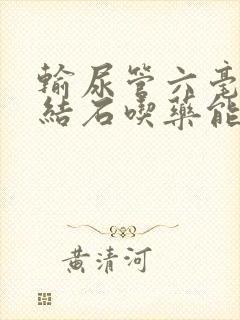 輸尿管六毫
結石喫藥能
黃清河